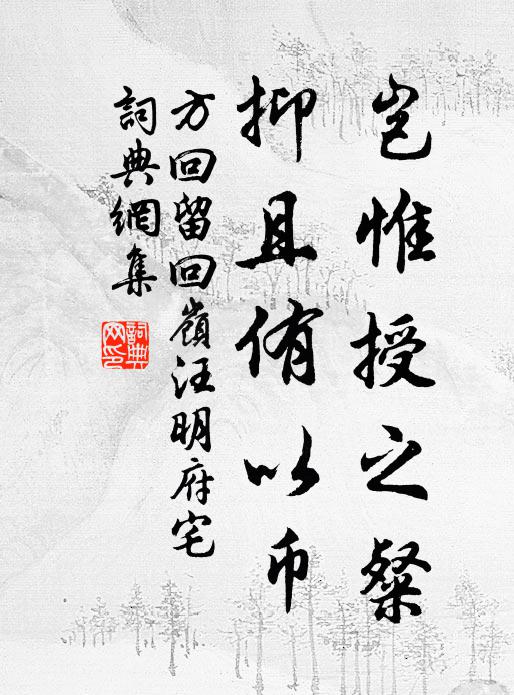 豈惟授之粲
抑且侑以币
方回留回嶺汪明府宅
詞典網集
詞典
网印